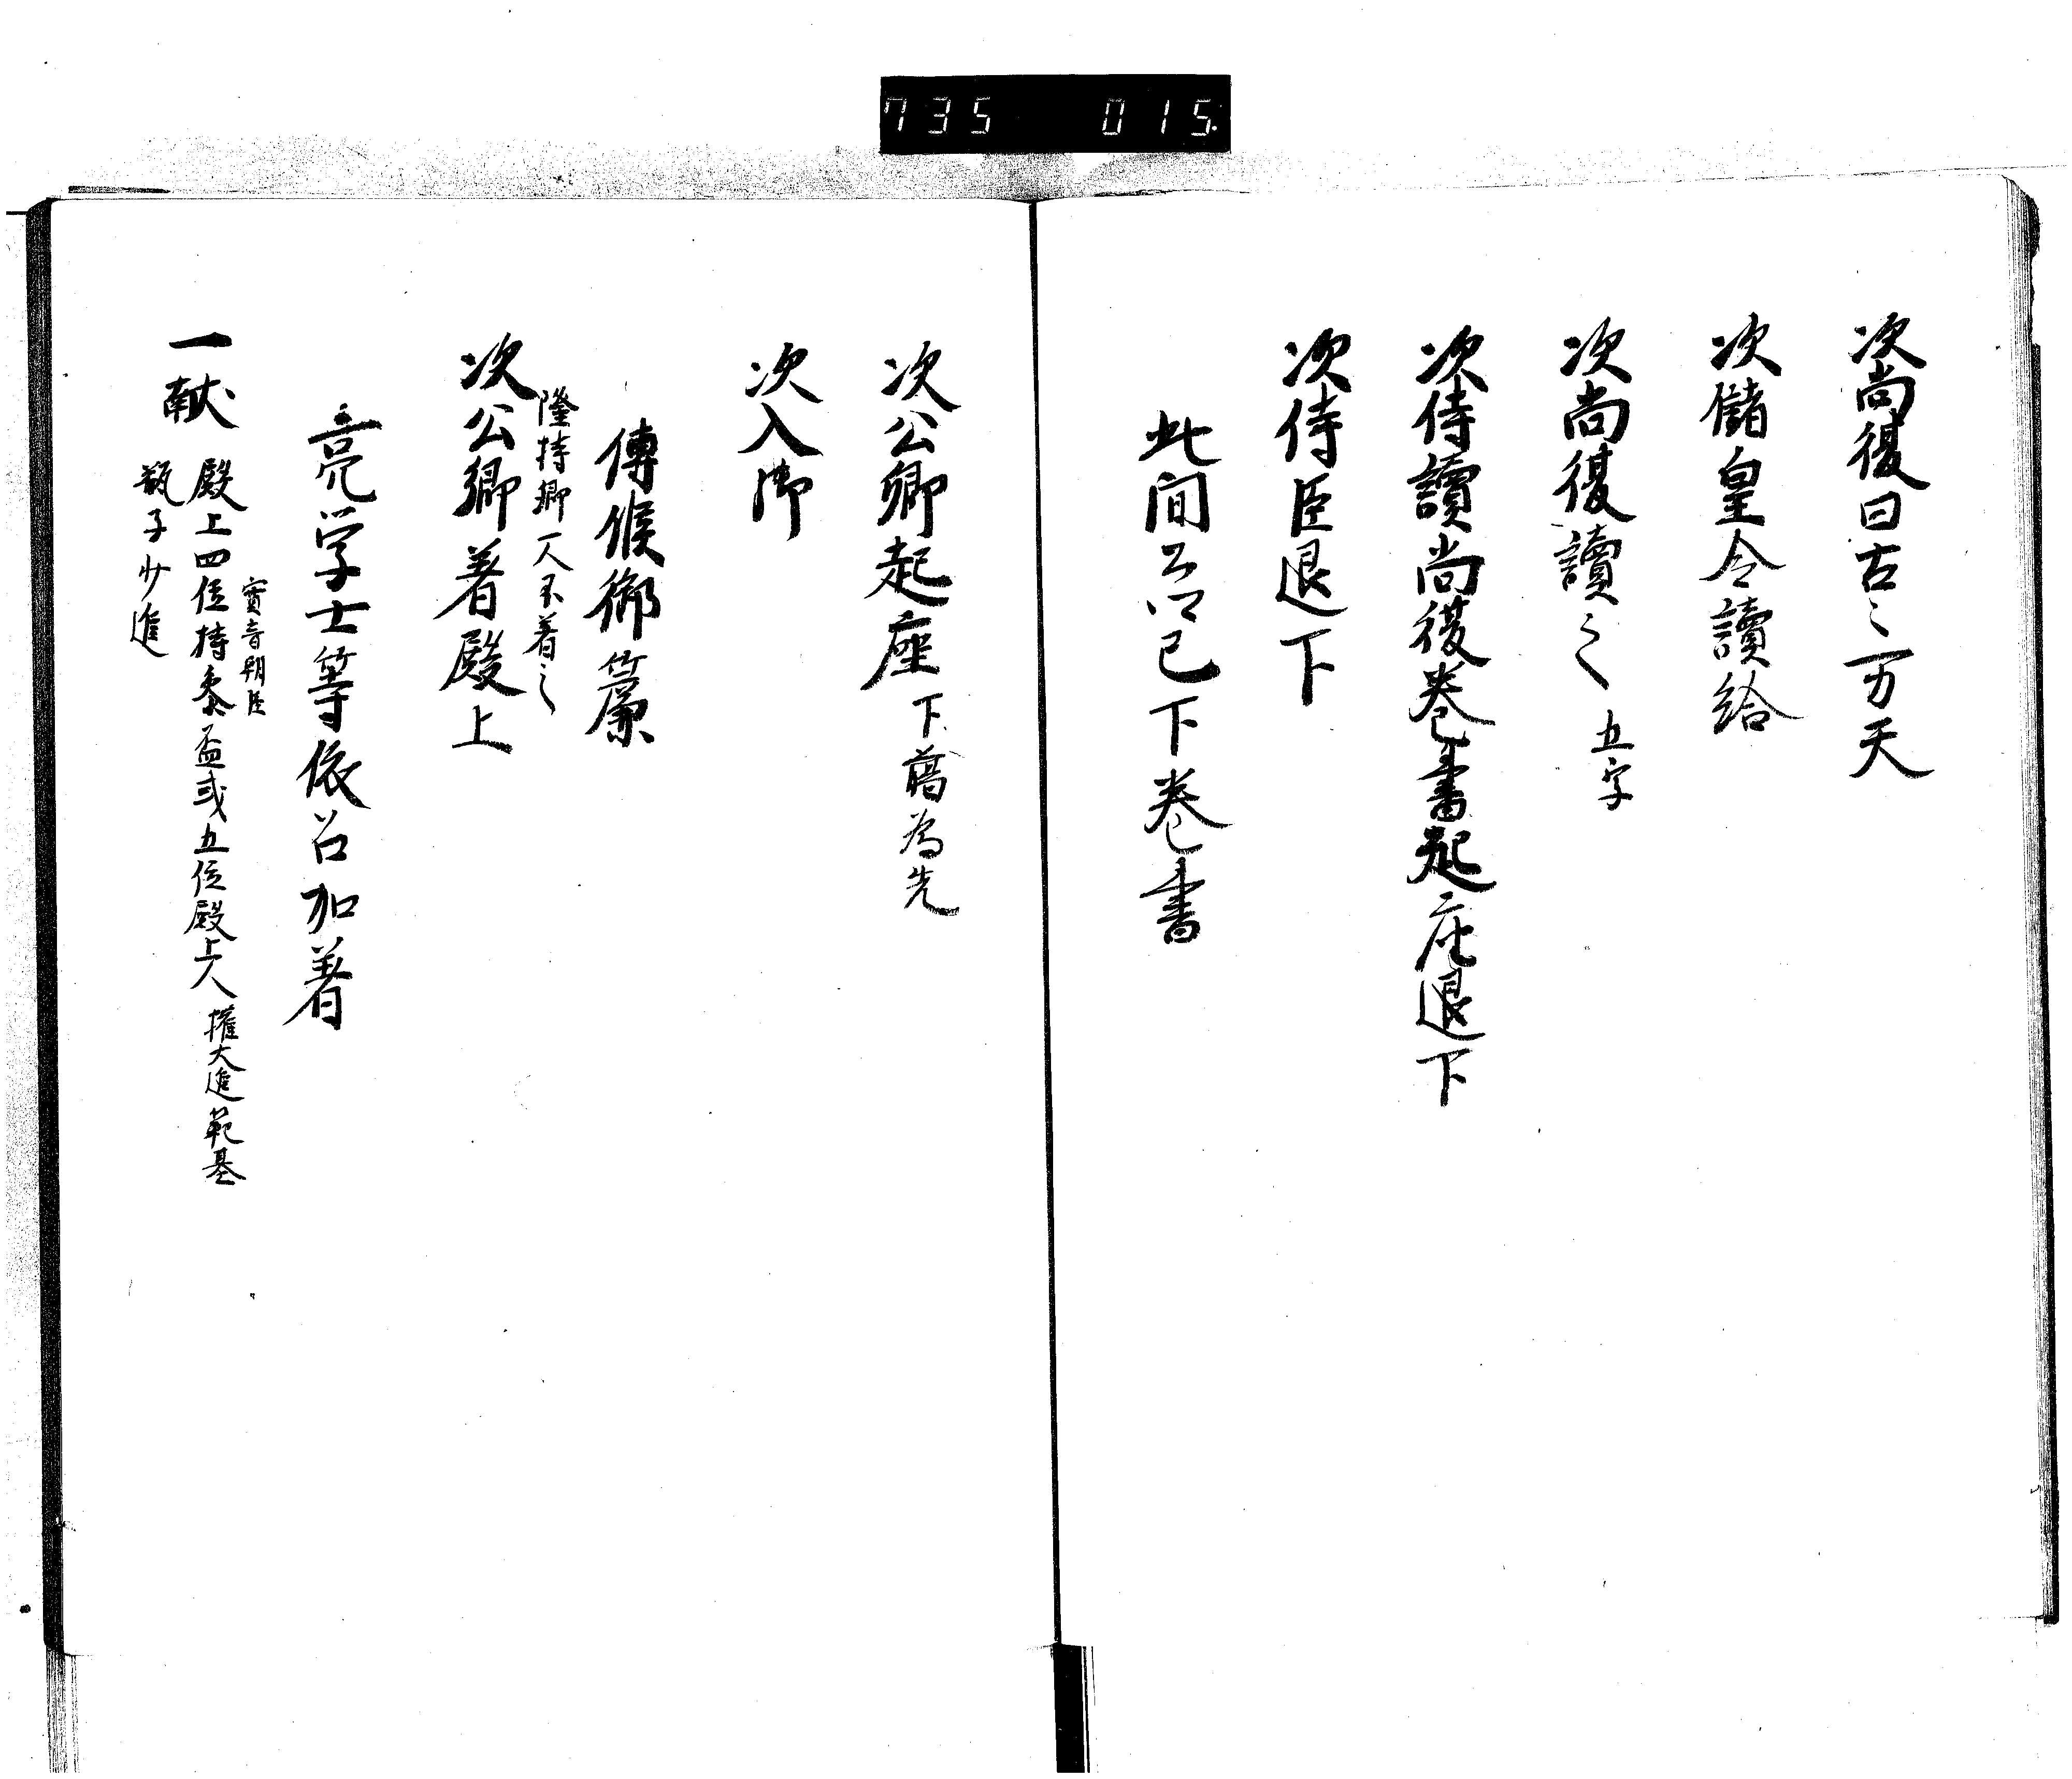 735 015
次尚復曰古々万天
次儲皇令讀給
次尚復讀之 五字
次侍讀尚復巻書起座退下
次侍臣退下
此間已下巻書
次公卿起座 下﨟為先
次入御
傅候御簾
隆持卿一人不着之
次公卿着殿上
亮学士等依召加着
實音朝臣
一献 殿上四位持参盃或五位殿上人 權大進範基
瓶子少進